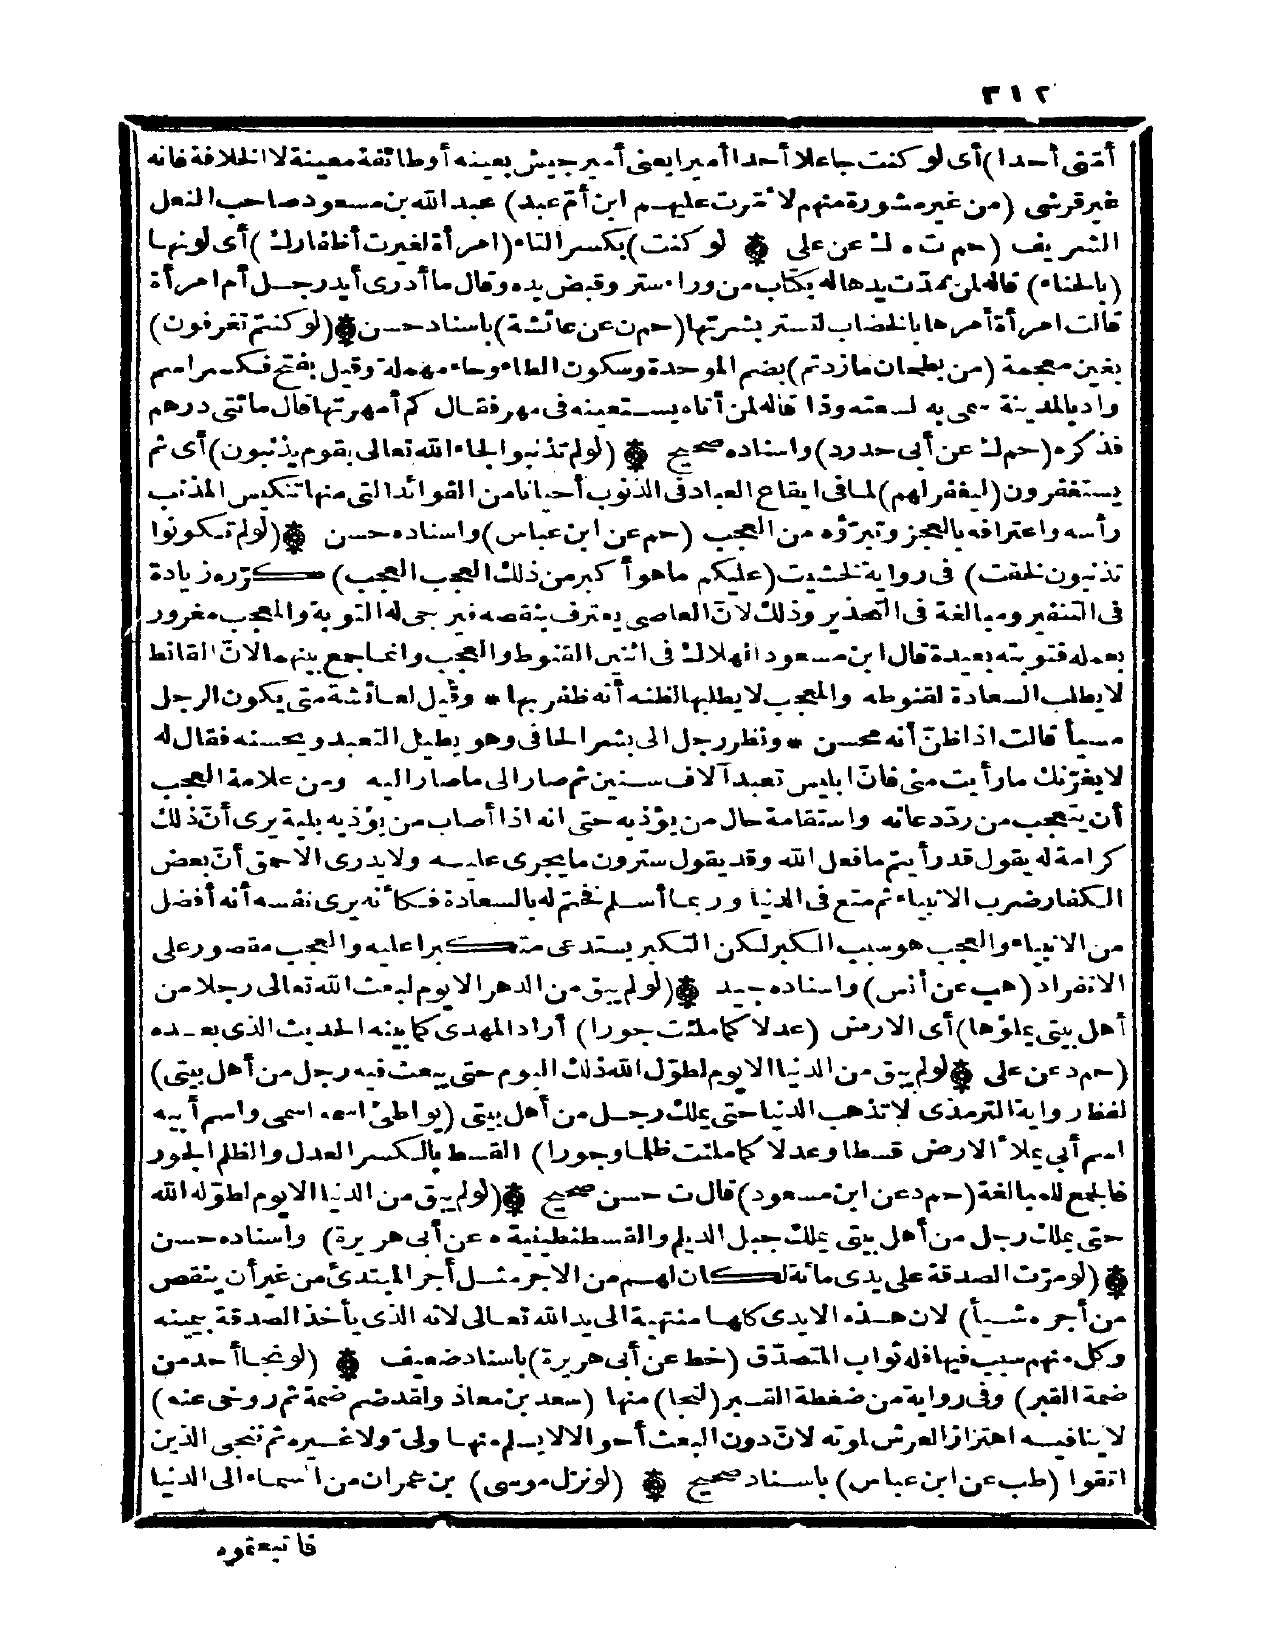 ٣١٢
أمتى أحدا) أى لو كنت جاعلا أحدا أميرا يعنى أمير جيش بعينه أو طائفة معينة لا الخلافة فانه
غير قرشى (من غير مشورة منهم لأمّرت عليهم ابن أمّ عبد) عبد الله بن مسعود صاحب النعل
الشريف (حم ت ه ك عن على ۞ لو كنت) بكسر التاء (امرأة لغيرت أظفارك) أى لونها
(بالحناء) قاله لمن مدّت يدها له بكتاب من وراء ستر وقبض يده وقال ما أدرى أيد رجل أم امرأة
قالت امرأة أمرها بالخضاب لتستر بشرتها (حم ن عن عائشة) باسناد حسن ۞ (لو كنتم تغرفون)
بغين معجمة (من بطحان مازدتم) بضم الموحدة وسكون الطاء وحاء مهملة وقيل بفتح فكسر اسم
واد بالمدينة سمى به لسعته وذا قاله لمن أتاه يستعينه فى مهر فقال كم أمهرتها قال مائتى درهم
فذكره (حم ك عن أبى حدرد) واسناده صحيح ۞ (لو لم تذنبوا لجاء الله تعالى بقوم يذنبون) أى ثم
يستغفرون (ليغفر لهم) لما فى ايقاع العباد فى الذنوب أحيانا من الفوائد التى منها تنكيس المذنب
رأسه واعترافه بالعجز وتبرّؤه من العجب (حم عن ابن عباس) واسناده حسن ۞ (لو لم تكونوا
تذنبون لخفت) فى رواية لخشيت (عليكم ما هو أكبر من ذلك العجب العجب) كرّره زيادة
فى التنفير ومبالغة فى التحذير وذلك لانّ العاصى يعترف بنقصه فيرجى له التوبة والمعجب مغرور
بعمله فتوبته بعيدة قال ابن مسعود الهلاك فى اثنين القنوط والعجب وانما جمع بينهما لانّ القانط
لا يطلب السعادة لقنوطه والمعجب لا يطلبها لظنه أنه ظفر بها * وقيل لعائشة متى يكون الرجل
مسيأ قالت اذا ظنّ أنه محسن * ونظر رجل الى بشر الحافى وهو يطيل التعبد ويحسنه فقال له
لا يغرّنك ما رأيت منى فانّ ابليس تعبد آلاف سنين ثم صار الى ما صار اليه ومن علامة العجب
أن يتعجب من ردّ دعائه واستقامة حال من يؤذيه حتى انه اذا أصاب من يؤذيه بلية يرى أنّ ذلك
كرامة له يقول قد رأيتم ما فعل الله وقد يقول سترون ما يجرى عليه ولا يدرى الاحمق أنّ بعض
الكفار ضرب الانبياء ثم متع فى الدنيا وربما أسلم فختم له بالسعادة فكأنه يرى نفسه أنه أفضل
من الانبياء والعجب هو سبب الكبر لكن التكبر يستدعى متكبرا عليه والعجب مقصور على
الانفراد (هب عن أنس) واسناده جيد ۞ (لو لم يبق من الدهر الا يوم لبعث الله تعالى رجلا من
أهل بيتى يملؤها) أى الارض (عدلا كما ملئت جورا) أراد المهدى كما بينه الحديث الذى بعده
(حم د عن على ۞ لو لم يبق من الدنيا الا يوم لطوّل الله ذلك اليوم حتى يبعث فيه رجل من أهل بيتى)
لفظ رواية الترمذى لا تذهب الدنيا حتى يملك رجل من أهل بيتى (يواطئ اسمه اسمى واسم أبيه
اسم أبى يملأ الارض قسطا وعدلا كما ملئت ظلما وجورا) القسط بالكسر العدل والظلم الجور
فالجمع للمبالغة (حم د عن ابن مسعود) قال ت حسن صحيح ۞ (لو لم يبق من الدنيا الا يوم لطوّله الله
حتى يملك رجل من أهل بيتى يملك جبل الديلم والقسطنطينية ه عن أبى هريرة) واسناده حسن
۞ (لو مرّت الصدقة على يدى مائة لكان لهم من الاجر مثل أجر المبتدئ من غير أن ينقص
من أجره شيأ) لان هذه الايدى كلها منتهية الى يد الله تعالى لانه الذى يأخذ الصدقة بيمينه
وكل منهم سبب فيها فله ثواب المتصدّق (خط عن أبى هريرة) باسناد ضعيف ۞ (لو نجا أحد من
ضمة القبر) وفى رواية من ضغطة القبر (لنجا) منها (سعد بن معاذ ولقد ضم ضمة ثم روخى عنه)
لا ينافيه اهتزاز العرش لموته لانّ دون البعث أحوالا لا يسلم منها ولىّ ولا غيره ثم ننجى الذين
اتقوا (طب عن ابن عباس) باسناد صحيح ۞ (لو نزل موسى) بن عمران من السماء الى الدنيا
فاتبعتموه